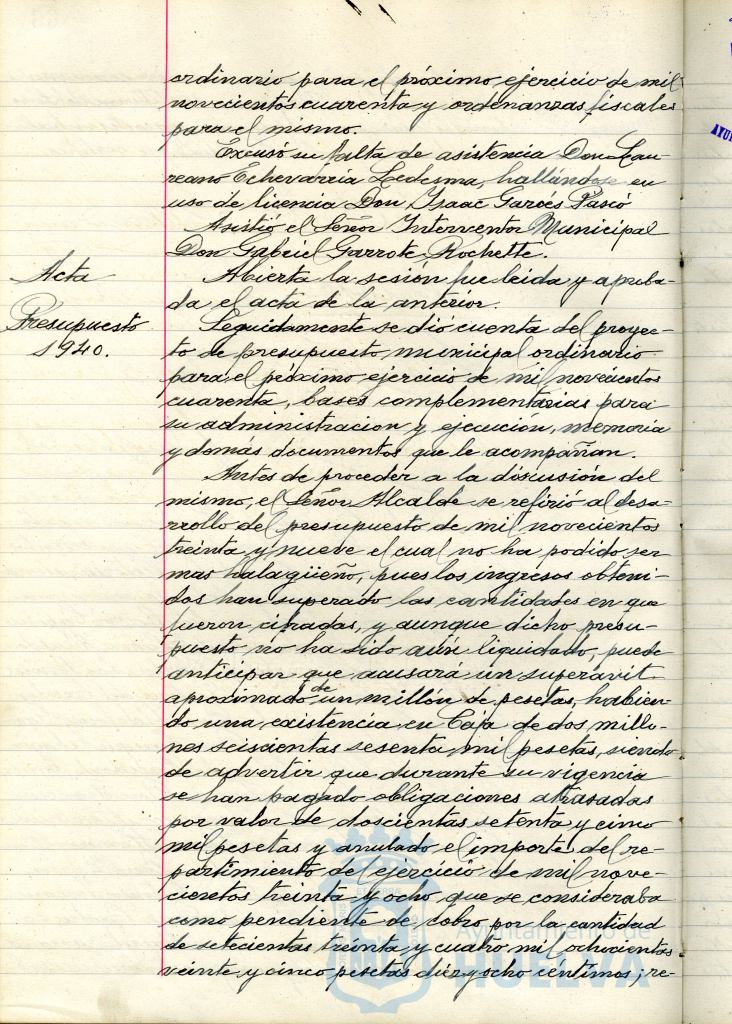 ordinario para el próximo ejercicio de mil
novecientos cuarenta y ordenanzas fiscales
para el mismo.
Excusó su falta de asistencia Don Lau-
reano Echevarría Ledesma, hallándose en
uso de licencia Don Isaac Garces Pascó
Asistió el Señor Interventor Municipal
Don Gabriel Garrote Rochette.
Acta
Abierta la sesión fue leida y aproba-
da el acta de la anterior.
Presupuesto
1940.
Seguidamente se dió cuenta del proyec-
to de presupuesto municipal ordinario
para el próximo ejercicio de mil novecientos
cuarenta, bases complementarias para
su administracion y ejecucion, memoria
y demás documentos que le acompañan.
Antes de proceder a la discusión del
mismo, el Señor Alcalde se refirió al desa-
rrollo del presupuesto de mil novecientos
treinta y nueve el cual no ha podido ser
mas halagüeño, pues los ingresos obteni-
dos han superado las cantidades en que
fueron cifradas, y aunque dicho presu-
puesto no ha sido aún liquidado, puede
anticipar que acusará un superavit
aproximado de un millón de pesetas, habien-
do una existencia en Caja de dos millo-
nes seiscientas sesenta mil pesetas, siendo
de advertir que durante su vigencia
se han pagado obligaciones atrasadas
por valor de doscientas setenta y cinco
mil pesetas y anulado el importe del re-
partimiento del ejercicio de mil nove-
cientos treinta y ocho que se consideraba
como pendiente de cobro por la cantidad
de setecientas treinta y cuatro mil ochocientas
veinte y cinco pesetas diez y ocho céntimos; re-
Ayuntamiento de
HUELVA